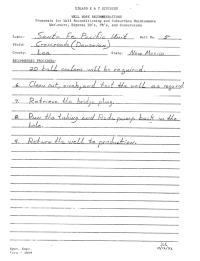 MIDLAND E & P DIVISION
WELL WORK RECOMMENDATIONS
Proposals for Well Reconditioning and Subsurface Maintenance
Workovers, Repairs and Conversions
Lease: Santa Fe Pacific Unit Well No. 5
Field: Crossroads (Devonian)
County: Lea State: New Mexico
RECOMMENDED PROCEDURE:
20 ball sealers will be required.
6. Clean out, swab, and test the well as required
7. Retrieve the bridge plug.
8. Run the tubing and Reda pump back in the
hole.
9. Return the well to production.